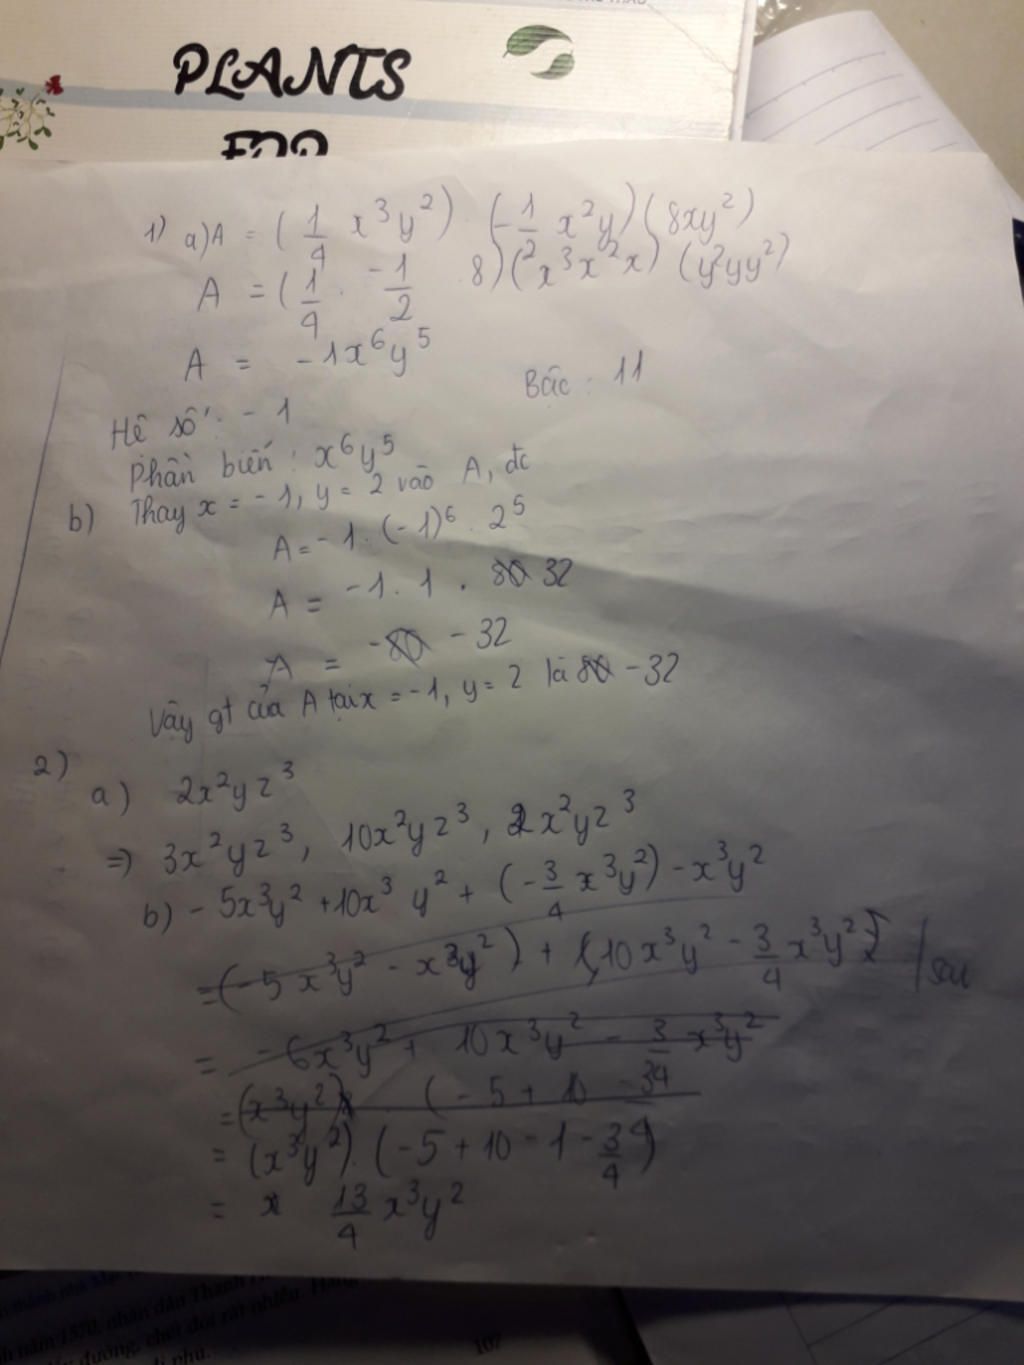 PLANTS
FOR
1) a) A = (1/4 x³y²) · (-1/2 x²y)(8xy²)
A = (1/4 · -1/2 · 8)(x³x²x) (y²yy²)
A = -1x⁶y⁵
Hệ số: -1
Bậc: 11
Phần biến: x⁶y⁵
b) Thay x = -1, y = 2 vào A, đc
A = -1·(-1)⁶·2⁵
A = -1·1·80 32
A = -80 -32
Vậy gt của A tại x = -1, y = 2 là 80 -32
2)
a) 2x²yz³
=> 3x²yz³, 10x²yz³, 2x²yz³
b) -5x³y² + 10x³y² + (-3/4 x³y²) - x³y²
= (-5x³y² - x³y²) + (10x³y² - 3/4 x³y²)
= -6x³y² + 10x³y² - 3/4 x³y²
= (x³y²) · (-5 + 10 - 3/4
= (x³y²) · (-5 + 10 - 1 - 3/4)
= 13/4 x³y²
107